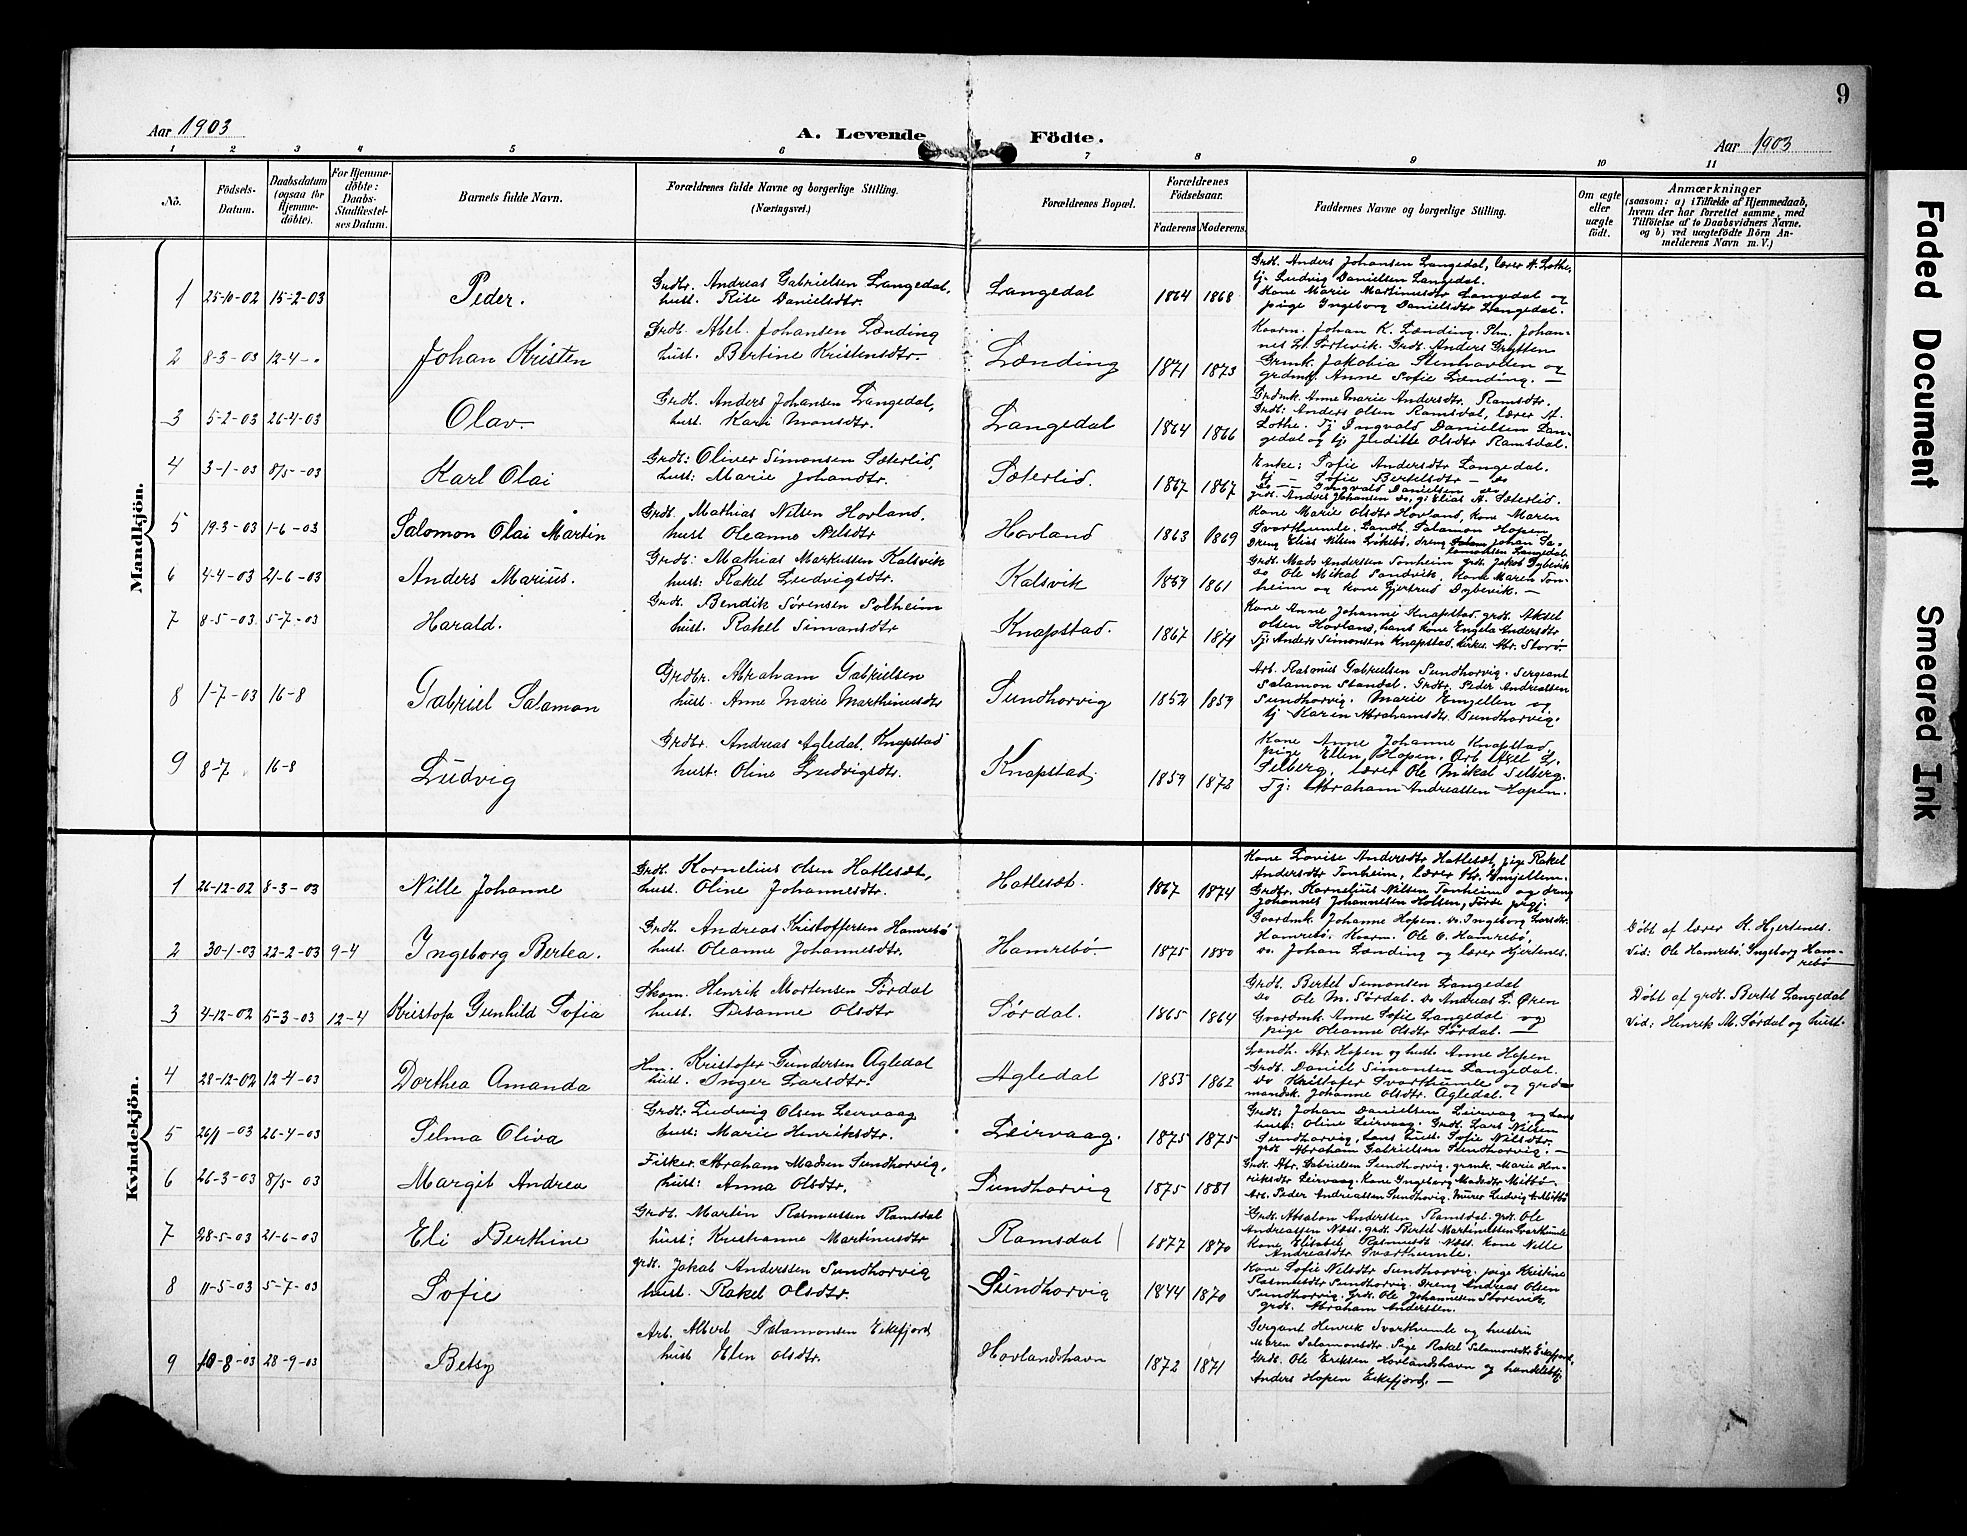 9
Aar 1903
A. Levende Födte.
Aar 1903
1 2 3 4 5 6 7 8 9 10 11
No.
Födsels-Datum.
Daabsdatum (ogsaa for Hjemme-döbte).
For Hjemme-döbte: Daabs-Stadfæstel-ses Datum.
Barnets fulde Navn.
Forældrenes fulde Navne og borgerlige Stilling.
(Næringsvei.)
Forældrenes Bopæl.
Forældrenes Födselsaar.
Faderens Moderens.
Faddernes Navne og borgerlige Stilling.
Om ægte eller uægte födt.
Anmærkninger
(saasom: a) i Tilfælde af Hjemmedaab,
hvem der har forrettet samme, med
Tilföielse af to Daabsvidners Navne,
og b) ved uægtefödte Börn An-
melderens Navn m. V.)
Mandkjön.
1 25-10-02 15-2-03 Peder.
Grdbr. Andreas Gabrielsen Langedal,
hust. Rise Danielsdtr.
Langedal 1864 1868
Grdb. Anders Johansen Langedal, lærer A. Lothe,
tj. Ludvig Danielsen Langedal.
Kone Marie Martinusdtr Langedal og
pige Ingeborg Danielsdtr Langedal.
2 8-3-03 12-4-" Johan Kristen
Grdb. Abel Johansen Lænding
hust. Bertine Kristensdtr.
Lænding 1871 1873
Kaarm. Johan K. Lænding. Plm. Johan-
nes L. Sørbevik. Grdb. Anders Grytten
Grmk. Jakobia Stenhovden og
grdmk. Anne Sofie Lænding. —
3 5-2-03 26-4-03 Olav.
Grdb. Anders Johansen Langedal,
hust. Kari Monsdtr.
Langedal 1864 1866
Grdmk. Anne Marie Andersdtr. Ramsdal.
Grdb: Anders Olsen Ramsdal, lærer A.
Lothe. Tj Ingvald Danielsen Lan-
gedal og tj. Juditte Olsdtr Ramsdal.
4 3-1-03 8/5-03 Karl Olai
Grdb: Oliver Simonsen Sæterlid,
hust: Marie Johandtr.
Sæterlid. 1867 1867
Enke: Sofie Andersdtr Langedal.
tj — Sofie Bertelsdtr — do
Do — Ingvald Danielsen do
grdb. Anders Johansen do, g: Elias A. Sæterlid.
5 19-3-03 1-6-03 Salomon Olai Martin
Grdb. Mathias Nilsen Hovland,
hust Oleanne Nilsdtr
Hovland 1863 1869
Kone Marie Olsdtr Hovland, kone Maren
Svarthumle. Landh. Salamon Hopen
Dreng Elias Nilsen Likebø, dreng Johan Sa-
lamonsen Langedal.
6 4-4-03 21-6-03 Anders Marius.
Grdb: Mathias Markussen Kalsvik
hust: Rakel Ludvigsdtr.
Kalsvik 1859 1861
Grdb. Mads Anderssen Tonheim grdb. Jakob Dybevik
do Ole Mikal Sandvik, kone Maren Ton-
heim og kone Gjertrud Dybevik. —
7 8-5-03. 5-7-03 Harald.
Grdb. Bendik Sørensen Solheim
hust. Rakel Simonsdtr
Knapstad. 1867 1871
Kone Anne Johanne Knapstad grdb. Aksel
Olsen Hovland, hans kone Engela Andersdtr
Tj: Anders Simonsen Knapstad, kirkes. Abr. Storø
8 1-7-03 16-8 Gabriel Salamon
Grdbr. Abraham Gabrielsen
hust. Anne Marie Marthinusdtr
Sundhorvig 1852 1859
Arb. Rasmus Gabrielsen Sundhorvig. Sergeant
Salamon Standal. Grdbr. Peder Andreassen
Sundhorvig. Marie Emjellen og
tj Karen Abrahamsdtr. Sundhorvig.
9 8-7 16-8 Ludvig
Grdbr. Andreas Agledal, Knapstad
hust: Oline Ludvigsdtr.
Knapstad; 1859 1872
Kone Anne Johanne Knapstad,
pige Ellen Hopen. Arb Axel L.
Selberg, lærer Ole Mikal Selberg.
Tj: Abraham Andreassen Hopen.
Kvindekjön.
1 26-12-02 8-3-03 Nille Johanne
Grdb. Kornelius Olsen Hatlesæt,
hust. Oline Johannesdtr.
Hatlesæt. 1867 1874
Kone Lovise Andersdtr Hatlesæt, pige Rakel
Andersdtr Tonheim, lærer Kr. Emjellem.
Grdbr. Kornelius Nilsen Tonheim og dreng
Johannes Johannesen Holsen, Førde pgj.
2 30-1-03 22-2-03 9-4 Ingeborg Bertea.
Grdb. Andreas Kristoffersen Hamrebø
hust. Oleanne Johannesdtr.
Hamrebø 1875 1880
Gaardmk. Johanne Hopen. do Ingeborg Larsdtr
Hamrebø. Kaarm. Ole O. Hamrebø,
do. Johan Lænding og lærer Hjertenes.
Døbt af lærer K. Hjertenes.
Vid: Ole Hamrebø, Ingeborg Ham-
rebø
3 4-12-02 5-3-03 12-4 Kristofa Gunhild Sofia
Skom. Henrik Mortensen Sørdal
hust. Susanne Olsdtr
Sørdal. 1865 1864
Grdb. Bertel Simonsen Langedal
do Ole M. Sørdal. do Andreas L. Ören
Gaardmk. Anne Sofie Langedal og
pige Oleanne Olsdtr Sørdal. —
Døbt af grdb. Bertel Langedal
Vid: Henrik M. Sørdal og hust.
4 28-12-02 12-4-03 Dorthea Amanda
Hm. Kristofer Gundersen Agledal
hust. Inger Larsdtr.
Agledal 1853 1862
Landh. Abr. Hopen og hust. Anne Hopen
Grdb. Daniel Simonsen Langedal.
do Kristofer Svarthumle og grd-
mandsk. Johanne Olsdtr. Agledal.
5 26/1-03 26-4-03 Selma Oliva
Grdb: Ludvig Olsen Leirvaag
hust: Marie Henriksdtr.
Leirvaag. 1875 1875
Grdb: Johan Danielsen Leirvaag og hans
hust: Oline Leirvaag. Grdb. Lars Nilsen
Sundhorvig, hans hust. Sofie Nilsdtr.
grdb Abraham Gabrielsen Sundhorvig. —
6 26-3-03 8/5-03 Margit Andrea
Fisker. Abraham Madsen Sundhorvig,
hust: Anna Olsdtr.
Sundhorvig 1875 1881
Grdb. Abr. Gabrielsen Sundhorvig. grmk. Marie Hen-
riksdtr Leirvaag. Kone Ingeborg Madsdtr Midtbø
Arb. Peder Andreassen Sundhorvig. Murer Ludvig A. Midtbø
7 28-5-03 21-6-03 Eli Berthine
Grdb. Martin Rasmussen Ramsdal
hust: Kristianne Martinusdtr
Ramsdal 1877 1870
Grdb. Absalon Anderssen Ramsdal. grdb. Ole
Andreassen Næss. grdb. Bertel Martinussen Svarthumle
Kone Elisabet Rasmusdt Næss. kone Nille
Andreasdtr Svarthumle.
8 11-5-03 5-7-03 Sofie
grdb. Jakob Anderssen Sundhorvig
hust. Rakel Olsdtr.
Sundhorvig 1844 1870
Kone Sofie Nilsdtr Sundhorvig. pige Kristine
Rasmusdtr Sundhorvig. Dreng Andreas Olsen
Sundhorvig. Grdb. Ole Johannesen Storevik,
grdb. Abraham Anderssen.
9 10-8-03 28-9-03 Betsy
Arb. Albert Salamonsen Eikefjord
hust Elen Olsdtr.
Hovlandshavn 1872 1871
Sergant Henrik Svarthumle og hustru
Maren Salamonsdtr. Pige Rakel Salamonsdtr Eikefjord,
Grdb. Ole Eriksen Hovlandshavn og handelsbtj.
Anders Hopen Eikefjord. —
Faded Document
Smeared Ink